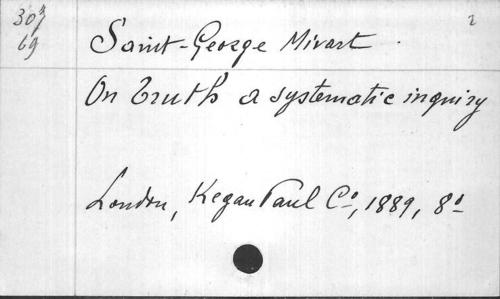 307
69
2
Saint-George Mivart.
On Truth a systematic inquiry
London, Kegan Paul Co, 1889, 8º